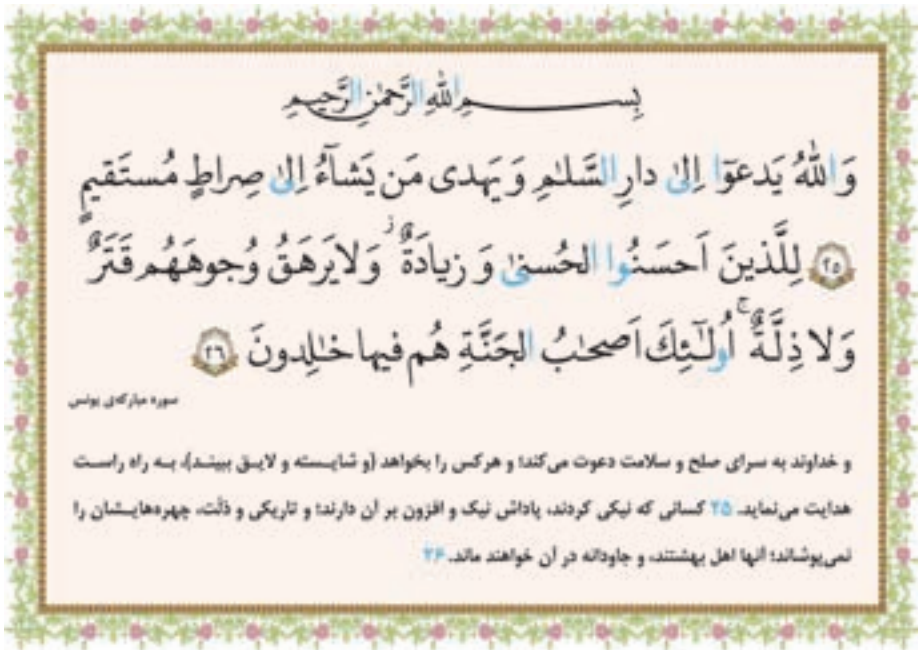 بِسـمِ اللّٰهِ الرَّحمٰنِ الرَّحيمِ
وَ اللّٰهُ يَدعوٓا اِلىٰ دارِ السَّلٰمِ وَ يَهدى مَن يَشآءُ اِلىٰ صِراطٍ مُستَقيمٍ
٢٥ لِلَّذينَ اَحسَنُوا الحُسنىٰ وَ زِيادَةٌ ۖ وَ لا يَرهَقُ وُجوهَهُم قَتَرٌ
وَ لا ذِلَّةٌ ۚ اُولٰٓئِكَ اَصحٰبُ الجَنَّةِ هُم فيها خٰلِدونَ ٢٦
سوره مبارکه‌ی یونس
و خداوند به سرای صلح و سلامت دعوت می‌کند؛ و هرکس را بخواهد (و شایسته و لایق ببیند)، به راه راست
هدایت می‌نماید. ۲۵ کسانی که نیکی کردند، پاداش نیک و افزون بر آن دارند؛ و تاریکی و ذلّت، چهره‌هایشان را
نمی‌پوشاند؛ آنها اهل بهشتند، و جاودانه در آن خواهند ماند. ۲۶